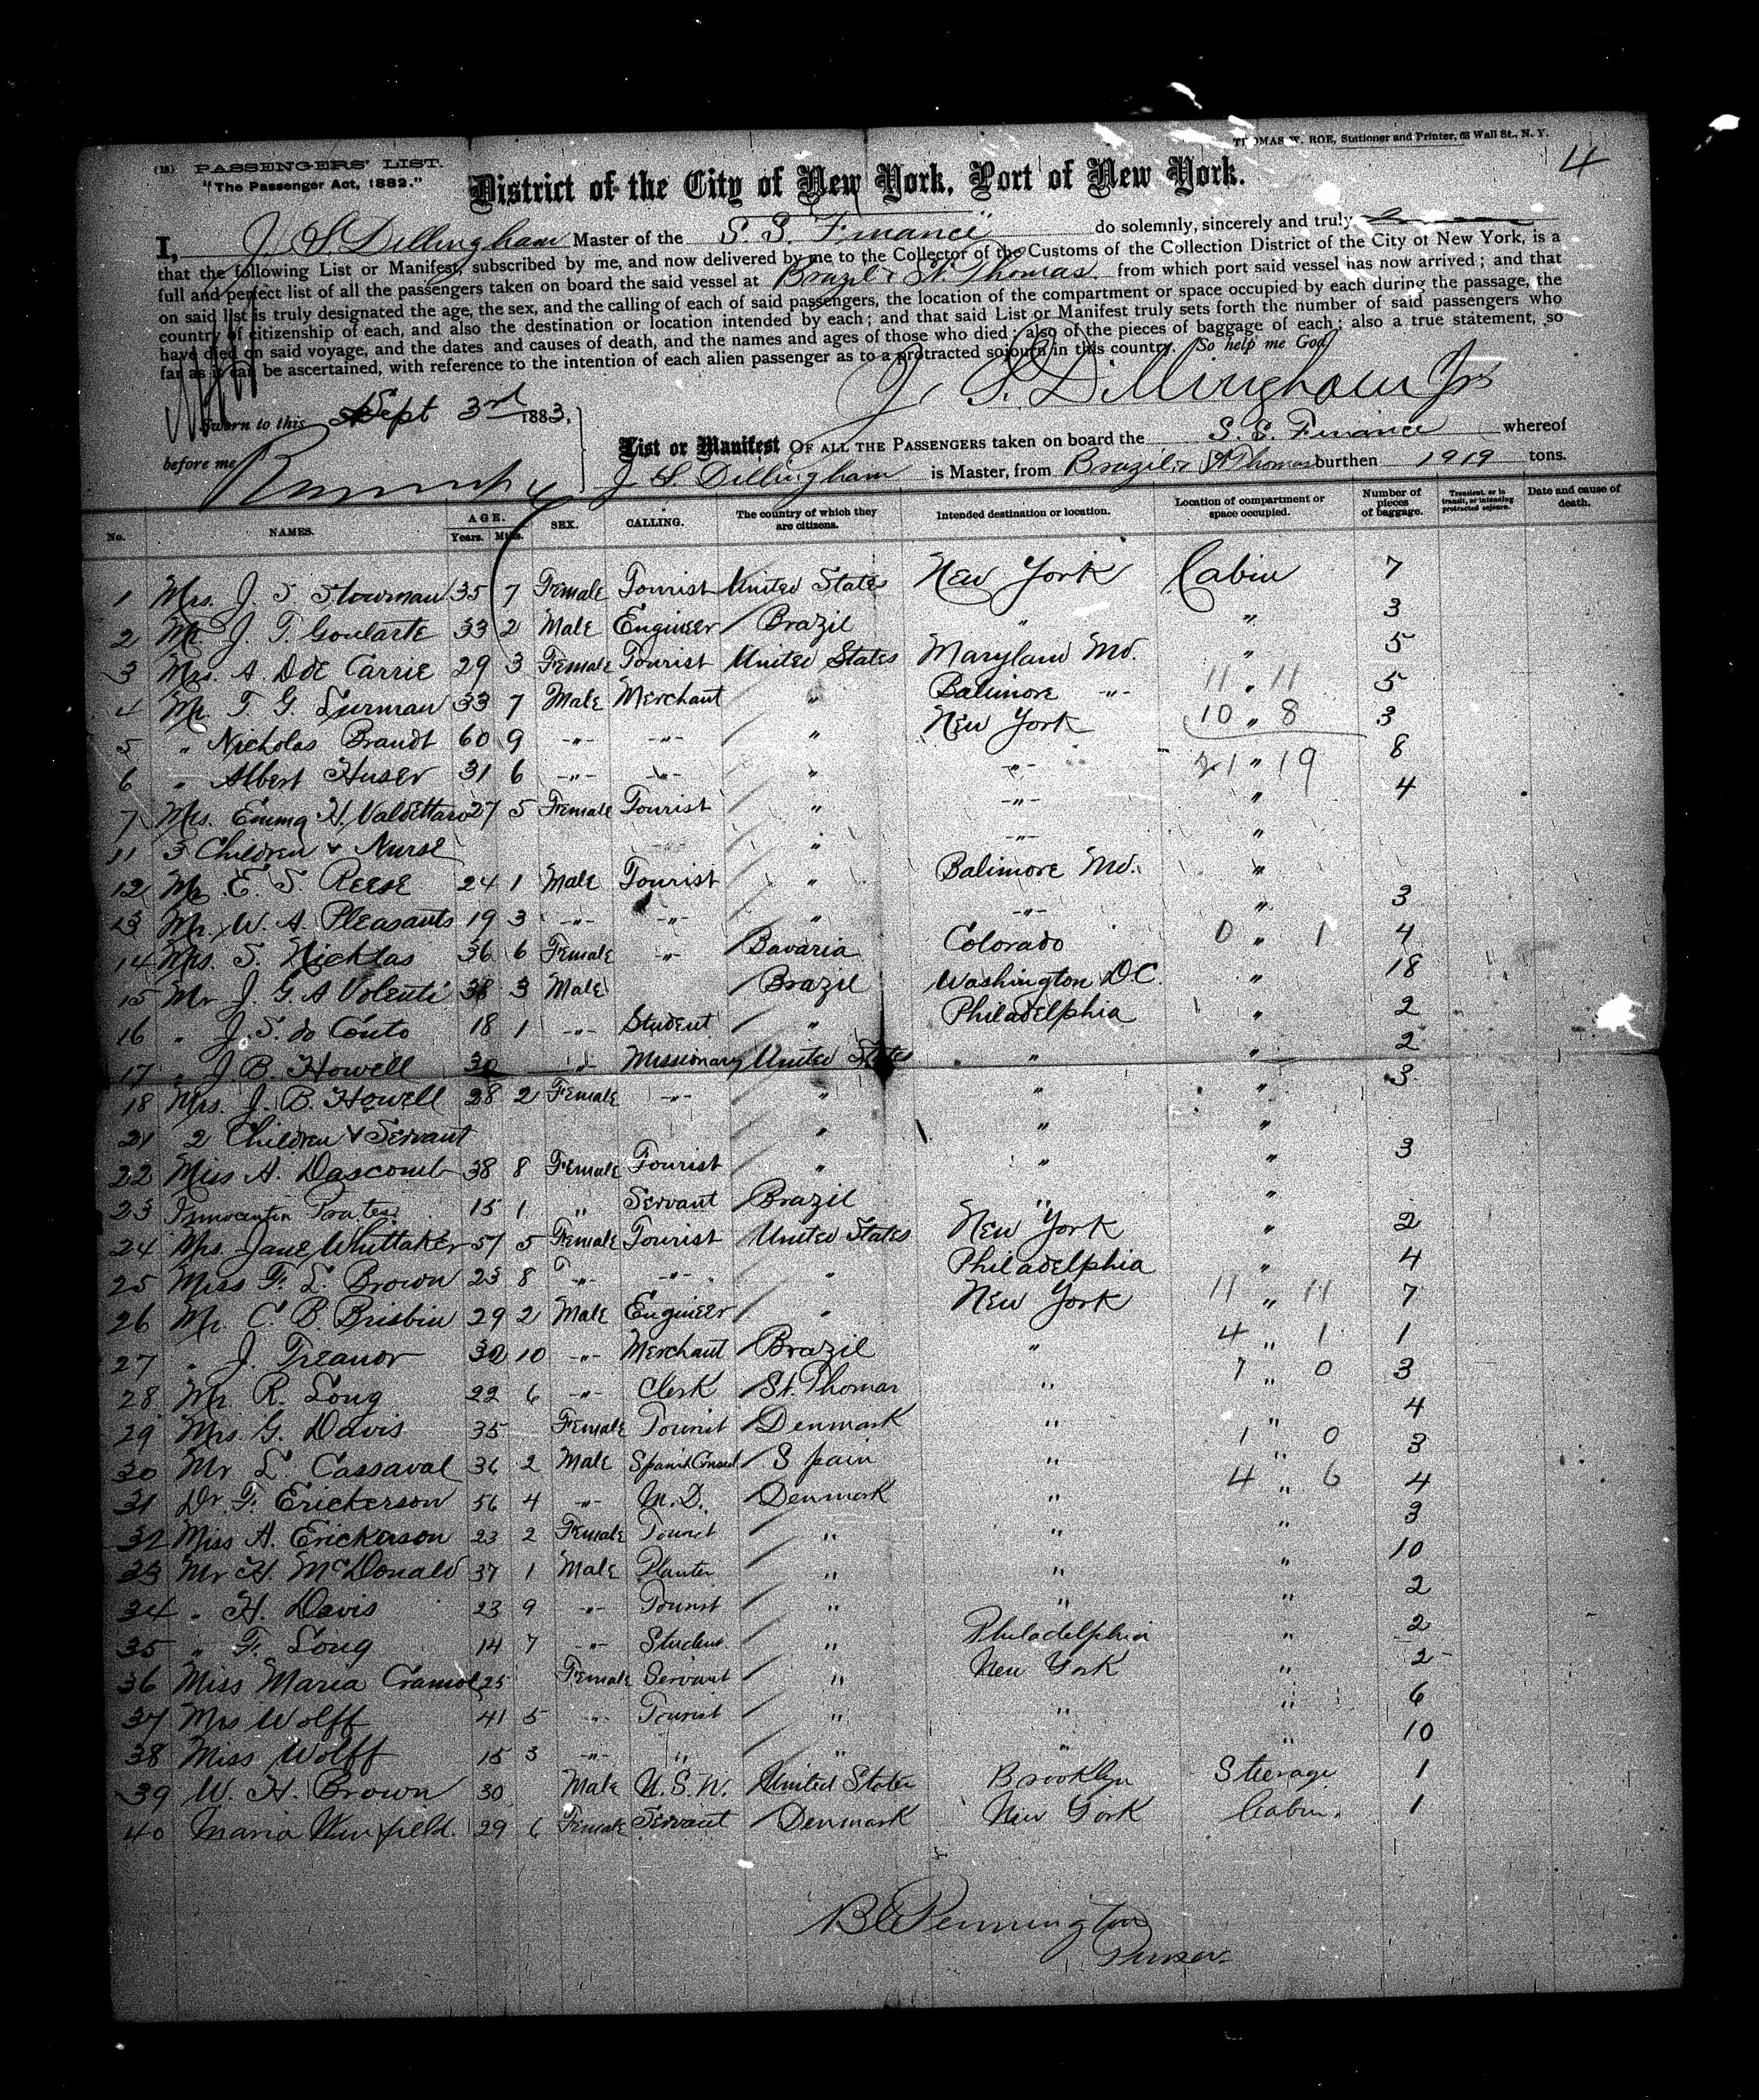 THOMAS W. ROE, Stationer and Printer, 68 Wall St., N. Y.
4
(18) PASSENGERS' LIST.
"The Passenger Act, 1882."
District of the City of New York, Port of New York.
I, J. S. Dillingham Master of the S. S. Finance do solemnly, sincerely and truly
that the following List or Manifest, subscribed by me, and now delivered by me to the Collector of the Customs of the Collection District of the City of New York, is a
full and perfect list of all the passengers taken on board the said vessel at Brazil & St. Thomas from which port said vessel has now arrived; and that
on said list is truly designated the age, the sex, and the calling of each of said passengers, the location of the compartment or space occupied by each during the passage, the
country of citizenship of each, and also the destination or location intended by each; and that said List or Manifest truly sets forth the number of said passengers who
have died on said voyage, and the dates and causes of death, and the names and ages of those who died; also of the pieces of baggage of each; also a true statement, so
far as it can be ascertained, with reference to the intention of each alien passenger as to a protracted sojourn in this country. So help me God
J. S. Dillingham Jr
Sworn to this Sept 3rd 1883,
before me
List or Manifest OF ALL THE PASSENGERS taken on board the S. S. Finance whereof
J S. Dillingham is Master, from Brazil & St Thomas burthen 1919 tons.
No. NAMES. AGE. Years. Mths. SEX. CALLING. The country of which they are citizens. Intended destination or location. Location of compartment or space occupied. Number of pieces of baggage. Transient, or in transit, or intending protracted sojourn. Date and cause of death.
1 Mrs. J. S. Slowman 35 7 Female Tourist United States New York Cabin 7
2 Mr J. T. Goularte 33 2 Male Engineer Brazil " " 3
3 Mrs. A. Doe Carrie 29 3 Female Tourist United States Maryland Md. " 5
4 Mr. T. G. Lurman 33 7 Male Merchant " Balimore -"- 11 " 11 5
5 " Nicholas Brandt 60 9 -"- -"- " New York 10 " 8 3
6 " Albert Huser 31 6 -"- -"- " -"- 21 " 19 8
7 Mrs. Emma H. Valdettaro 27 5 Female Tourist " -"- " 4
11 3 Children & Nurse " -"- "
12 Mr. E. S. Reese 24 1 Male Tourist " Balimore Md. "
13 Mr. W. A. Pleasants 19 3 -"- -"- " -"- " 3
14 Mrs. S. Nicklas 36 6 Female -"- Bavaria Colorado 0 " 1 4
15 Mr J. G. A Volenti 38 3 Male Brazil Washington D.C. " 18
16 " J. S. do Couto 18 1 -"- Student " Philadelphia " 2
17 " J. B. Howell 30 -"- Missionary United States " " 2
18 Mrs. J. B. Howell 28 2 Female -"- " " " 3
21 2 Children & Servant " " "
22 Miss A. Dascomb 38 8 Female Tourist " " " 3
23 Prates 15 1 " Servant Brazil " "
24 Mrs. Jane Whittaker 51 5 Female Tourist United States New York " 2
25 Miss F. L. Brown 23 8 -"- -"- " Philadelphia " 4
26 Mr. C. B. Brisbin 29 2 Male Engineer " New York 11 " 11 7
27 " J. Treanor 30 10 -"- Merchant Brazil " 4 " 1 1
28 Mr. R. Long 22 6 -"- Clerk St. Thomas " 7 " 0 3
29 Mrs. G. Davis 35 Female Tourist Denmark " " 4
30 Mr L. Cassaval 36 2 Male Spanish Consul Spain " 1 " 0 3
31 Dr. F. Erickerson 56 4 -"- M.D. Denmark " 4 " 6 4
32 Miss A. Erickerson 23 2 Female Tourist " " " 3
33 Mr H. McDonald 37 1 Male Planter " " " 10
34 " H. Davis 23 9 -"- Tourist " " " 2
35 " F. Long 14 7 -"- Student " Philadelphia " 2
36 Miss Maria 25 Female Servant " New York " 2
37 Mrs Wolff 41 5 -"- Tourist " " " 6
38 Miss Wolff 15 3 -"- " " " " 10
39 W. H. Brown 30 Male U.S.N. United States Brooklyn Steerage 1
40 Maria Winfield. 29 6 Female Servant Denmark New York Cabin. 1
Pennington
Purser